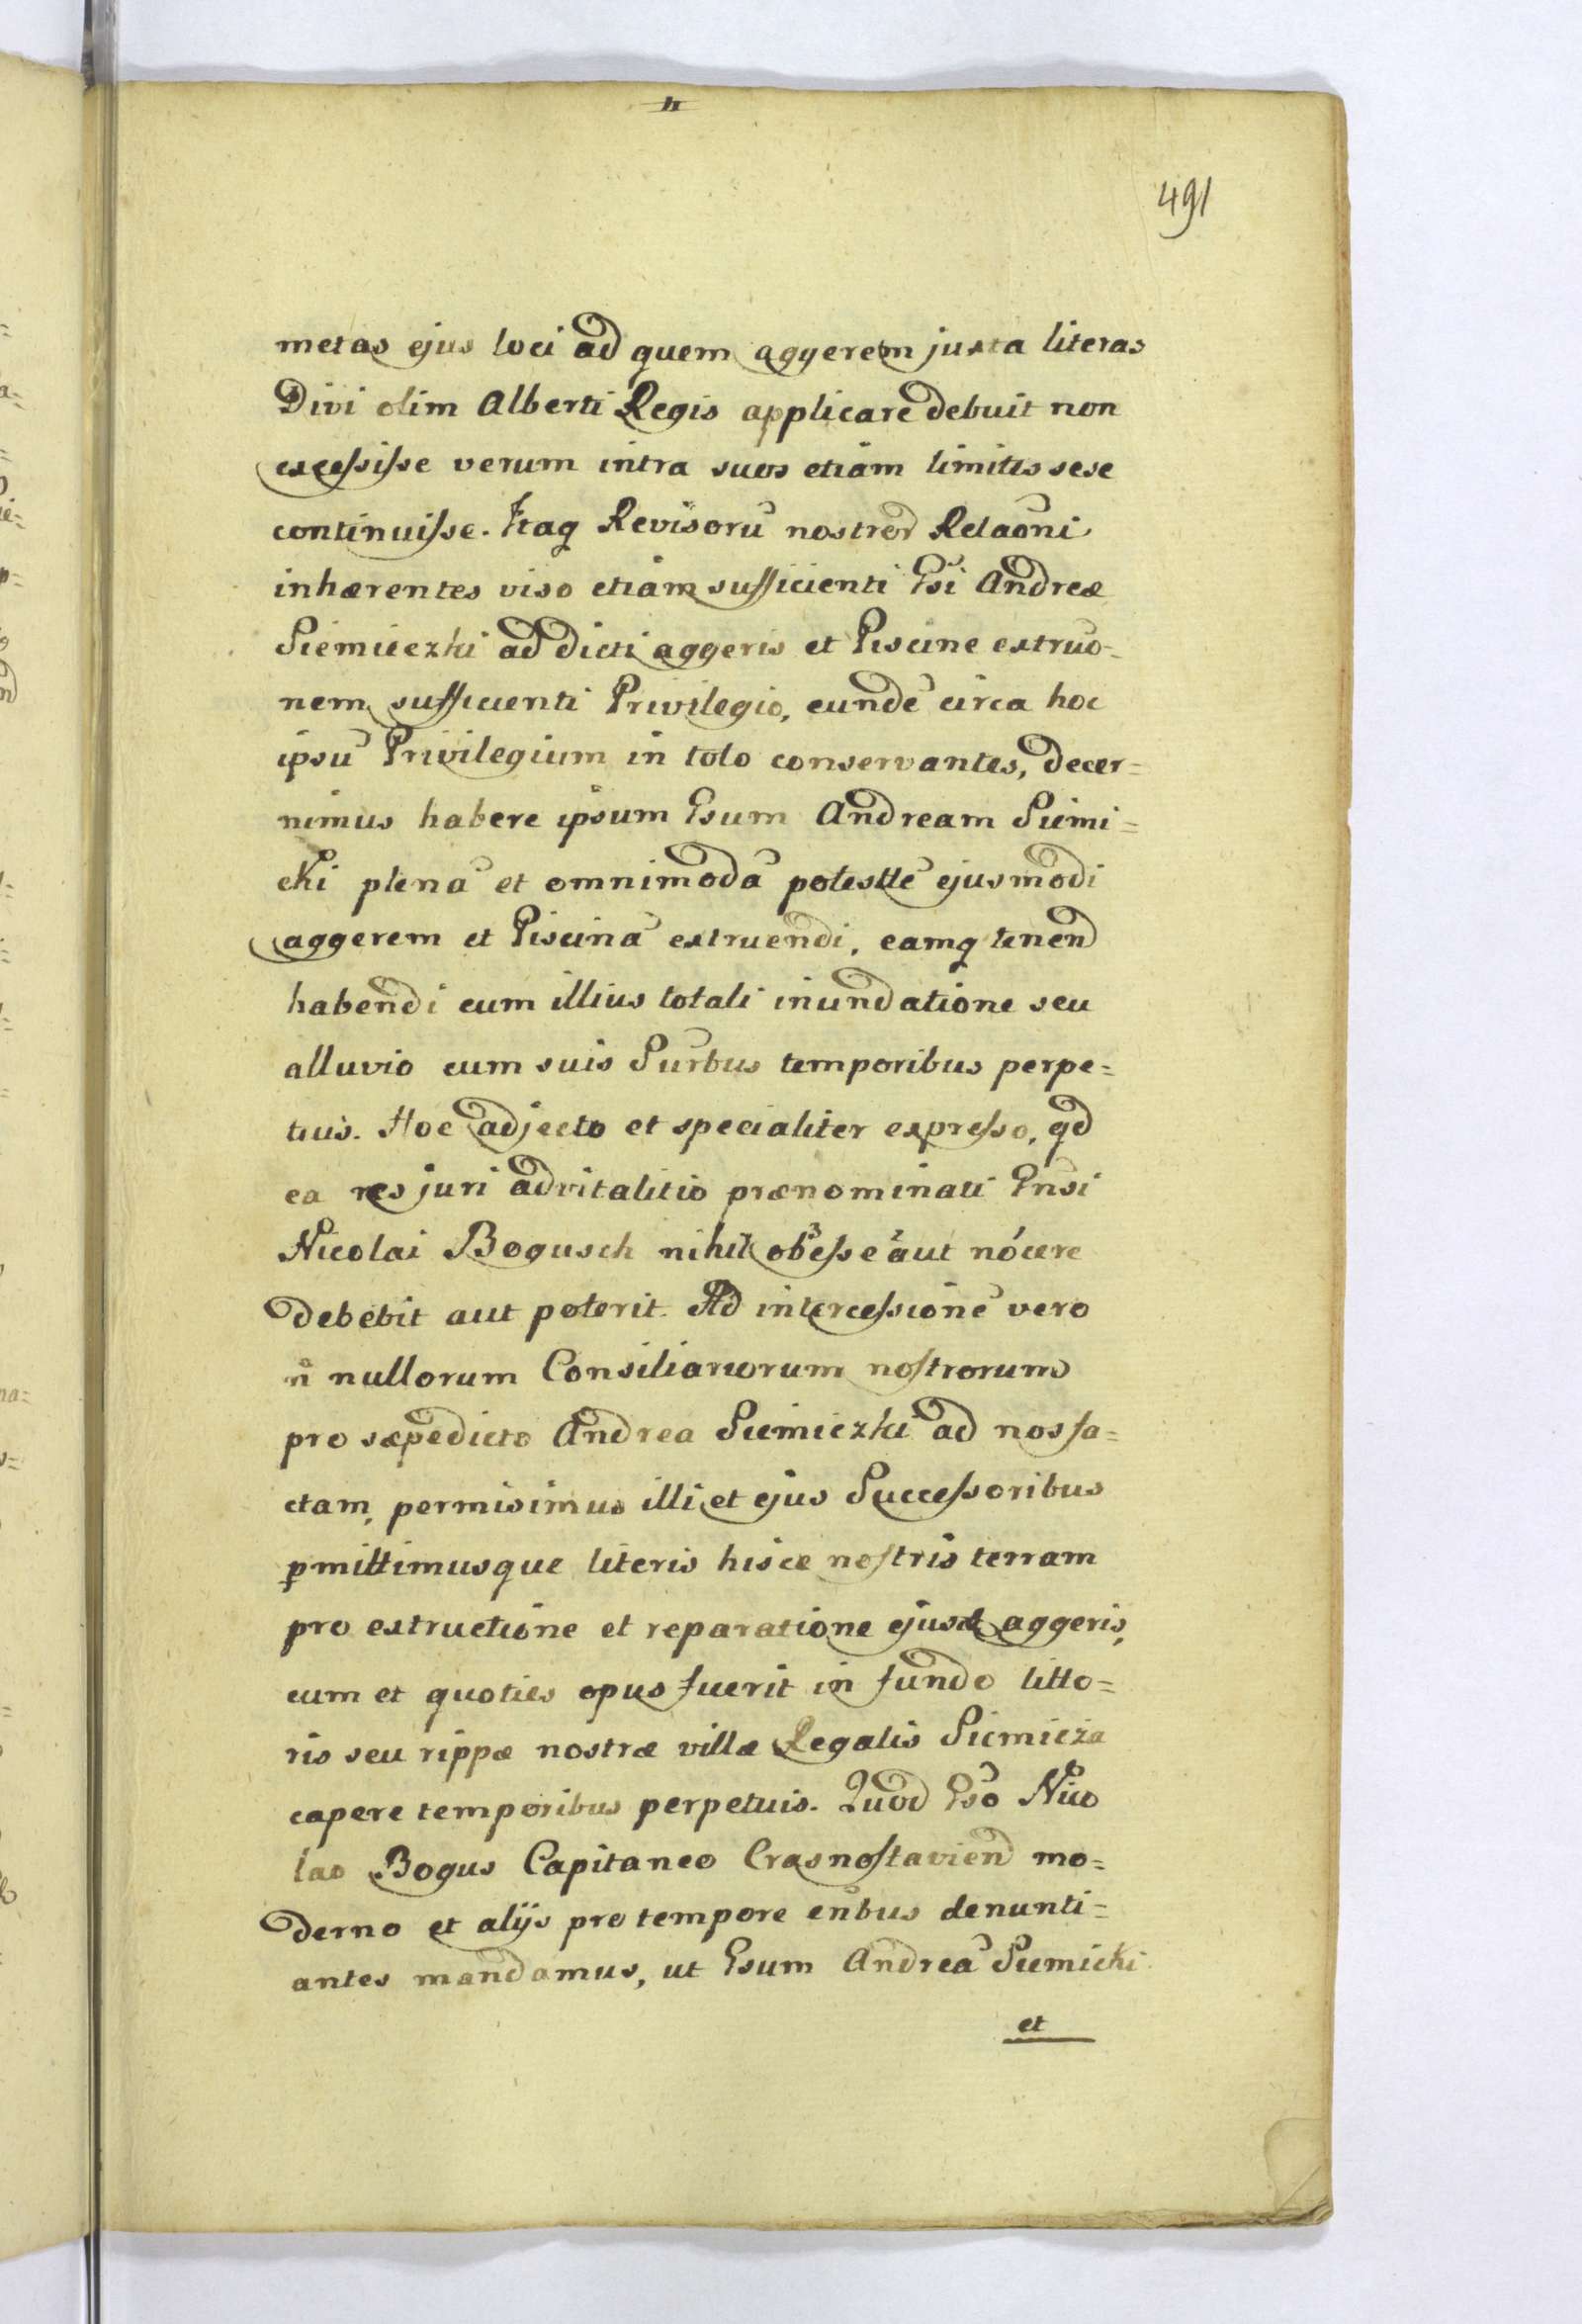 491
metas ejus loci ad quem aggerem juxta literas
Divi olim Alberti Regis applicare debuit non
excessisse verum intra suos etiam limites sese
continuisse. Itaq Revisorū nostror Relaōni
inhærentes viso etiam sufficienti Gsi Andreæ
Siemiiczki ad dicti aggeris et Piscine extruo-
nem sufficienti Privilegio, eundē circa hoc
ipsū Privilegium in toto conservantes, decer=
nimus habere ipsum Gsum Andream Siemi=
cki plenā et omnimodā potesttē ejusmodi
aggerem et Piscinā extruendi, eamq tenend
habendi cum illius totali inundatione seu
alluvio cum suis Surbus temporibus perpe=
tuis. Hoc adjecto et specialiter expresso, qd
ea res juri advitalitio prænominati Gnsi
Nicolai Bogusch nihil obesse aut nocere
debebit aut poterit. Ad intercessionē vero
n̊ nullorum Consiliariorum nostrorum
pro sæpedicto Andrea Siemiczki ad nos fa=
ctam, permisimus illi et ejus Successoribus
pmittimusque literis hisce nostris terram
pro extructione et reparatione ejusd aggeris,
cum et quoties opus fuerit in fundo litto=
ris seu rippæ nostræ villæ Regalis Siemieża
capere temporibus perpetuis. Quod Gso Nico
lao Bogus Capitaneo Crasnostaviend mo=
derno et alijs pro tempore enbus denunti=
antes mandamus, ut Gsum Andreā Siemicki
et